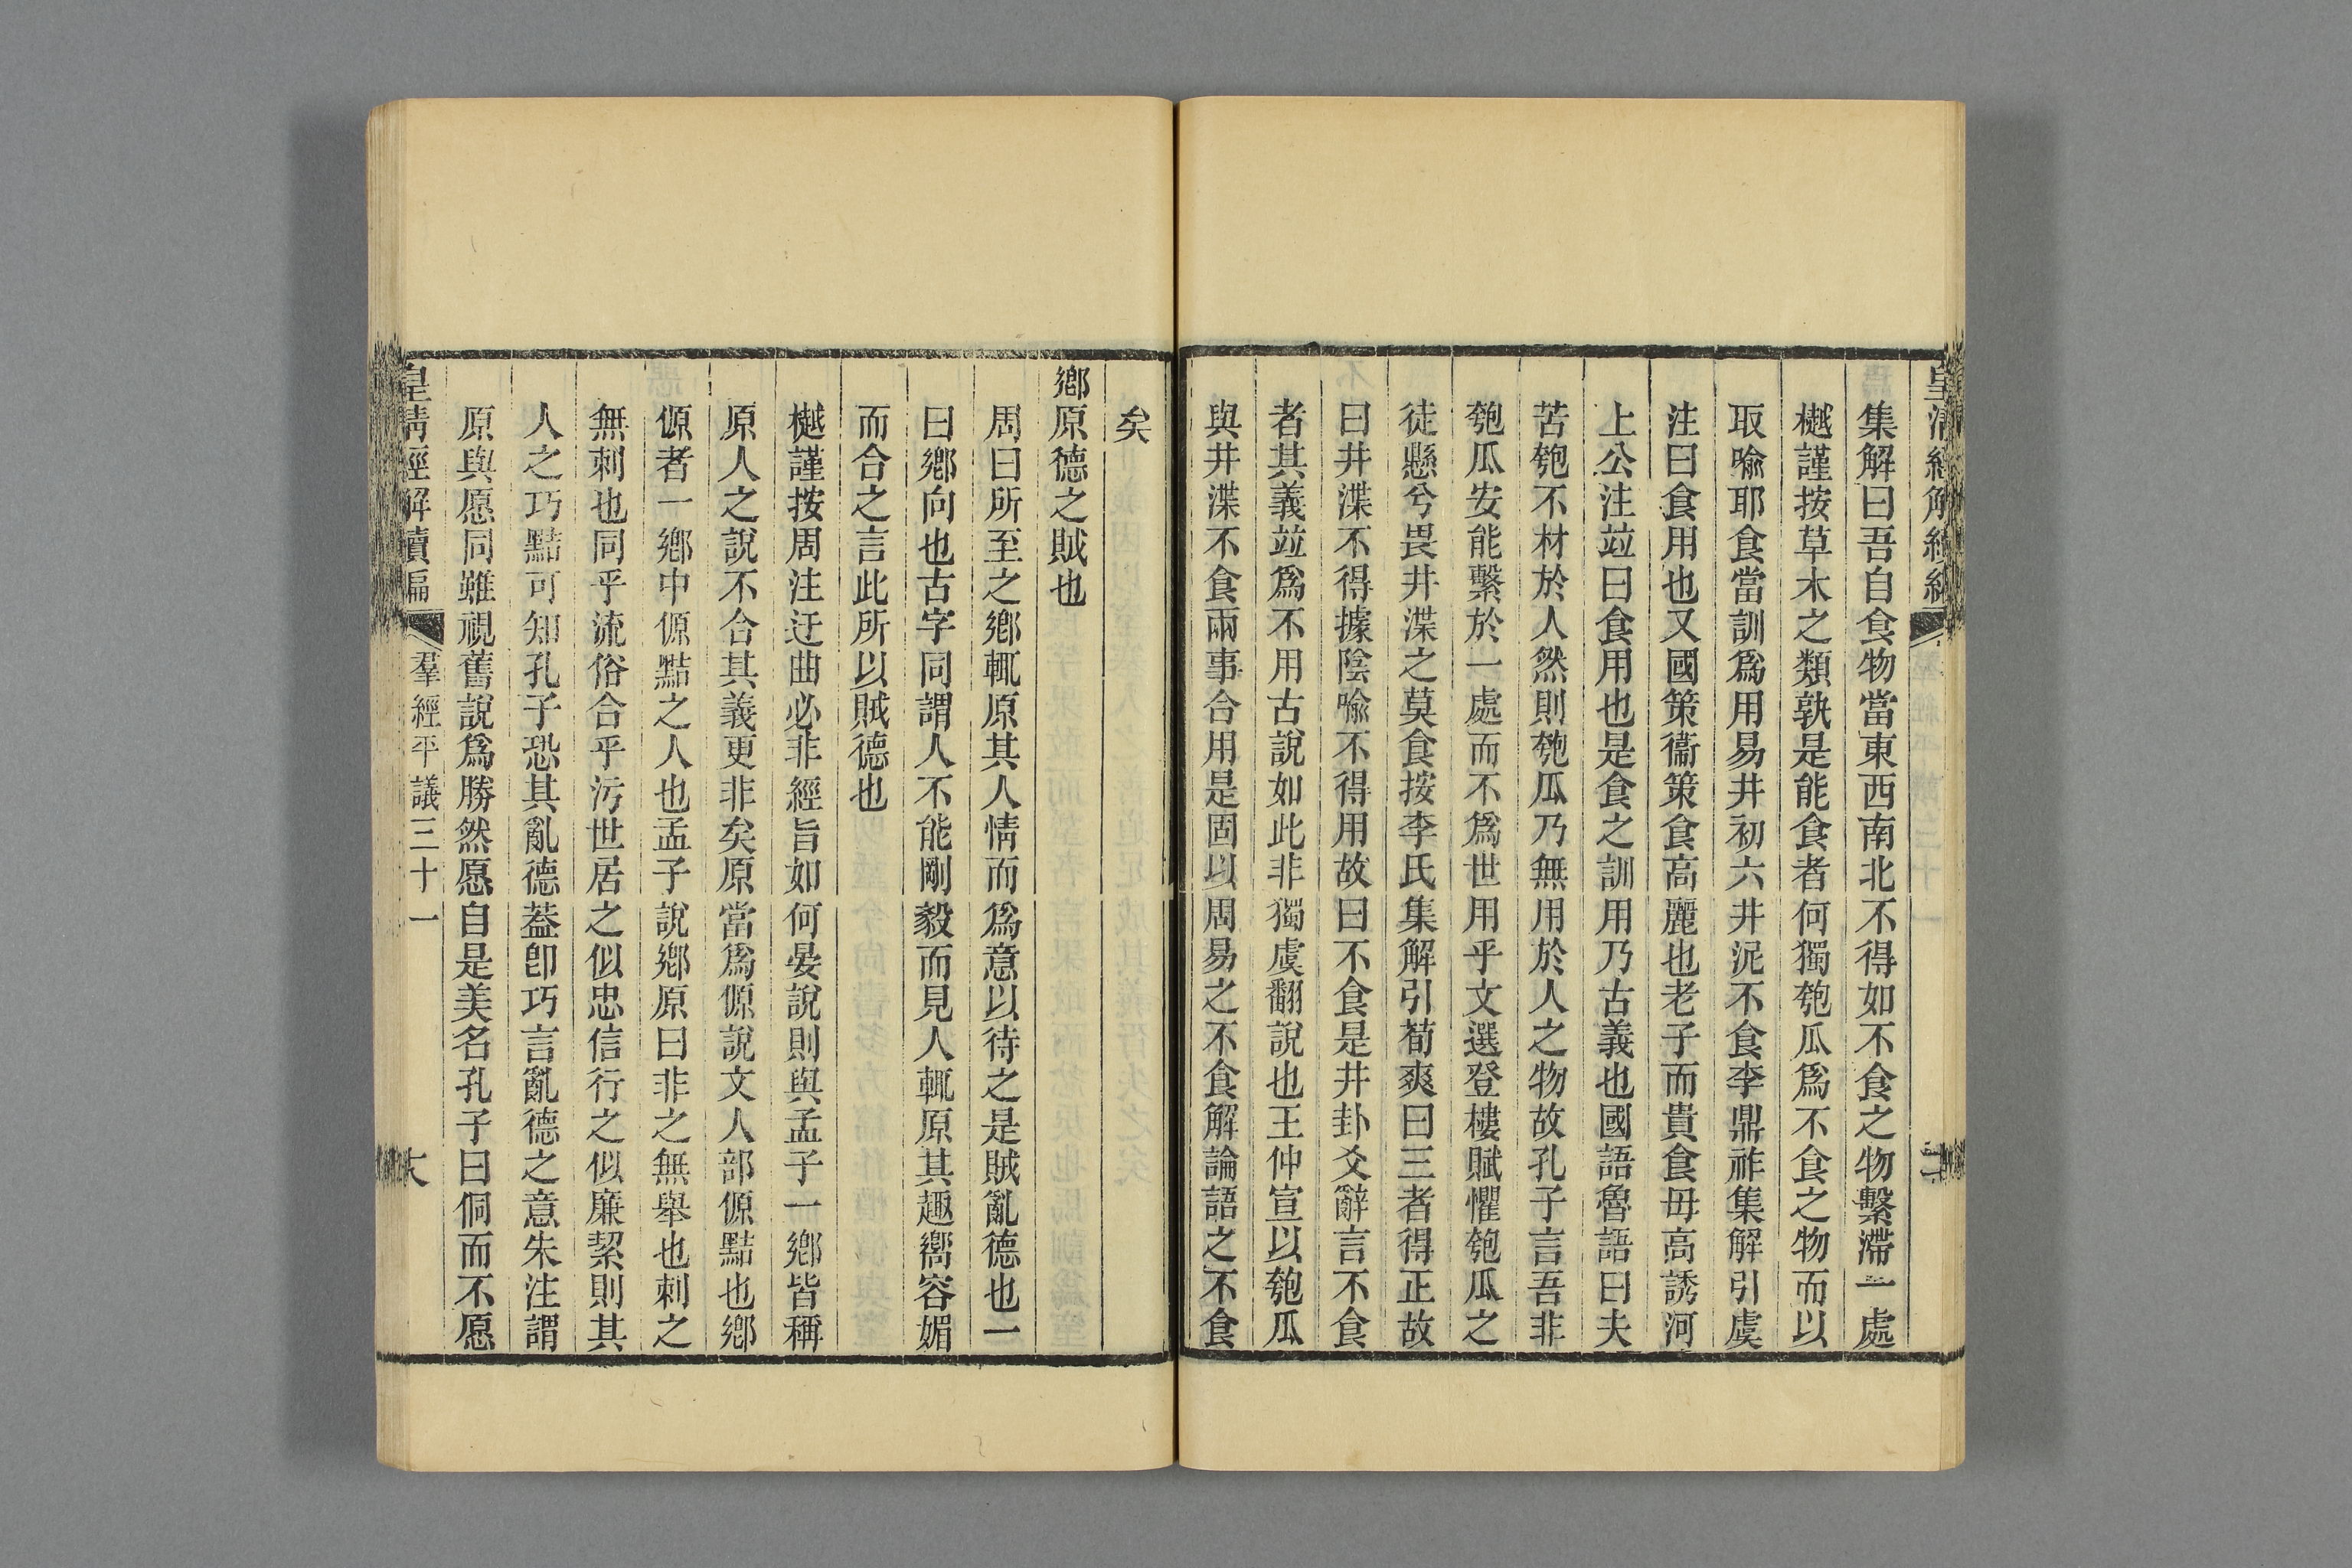 集解曰吾自食物當東西南北不得如不食之物繫滯一處
樾謹按草木之類孰是能食者何獨匏瓜爲不食之物而以
取喻耶食當訓爲用易井初六井泥不食李鼎祚集解引虞
注曰食用也又國策衞策食高麗也老子而貴食母高誘河
上公注竝曰食用也是食之訓用乃古義也國語魯語曰夫
苦匏不材於人然則匏瓜乃無用於人之物故孔子言吾非
匏瓜安能繫於一處而不爲世用乎文選登樓賦懼匏瓜之
徒懸兮畏井渫之莫食按李氏集解引荀爽曰三者得正故
曰井渫不得據陰喻不得用故曰不食是井卦爻辭言不食
者其義竝爲不用古說如此非獨虞翻說也王仲宣以匏瓜
與井渫不食兩事合用是固以周易之不食解論語之不食
矣
鄉原德之賊也
周曰所至之鄉輒原其人情而爲意以待之是賊亂德也一
曰鄉向也古字同謂人不能剛毅而見人輒原其趣嚮容媚
而合之言此所以賊德也
樾謹按周注迂曲必非經旨如何晏說則與孟子一鄉皆稱
原人之說不合其義更非矣原當爲傆說文人部傆黠也鄉
傆者一鄉中傆黠之人也孟子說鄉原曰非之無舉也刺之
無刺也同乎流俗合乎污世居之似忠信行之似廉絜則其
人之巧黠可知孔子恐其亂德葢卽巧言亂德之意朱注謂
原與愿同雖視舊說爲勝然愿自是美名孔子曰侗而不愿
皇淸經解續編
羣經平議三十一